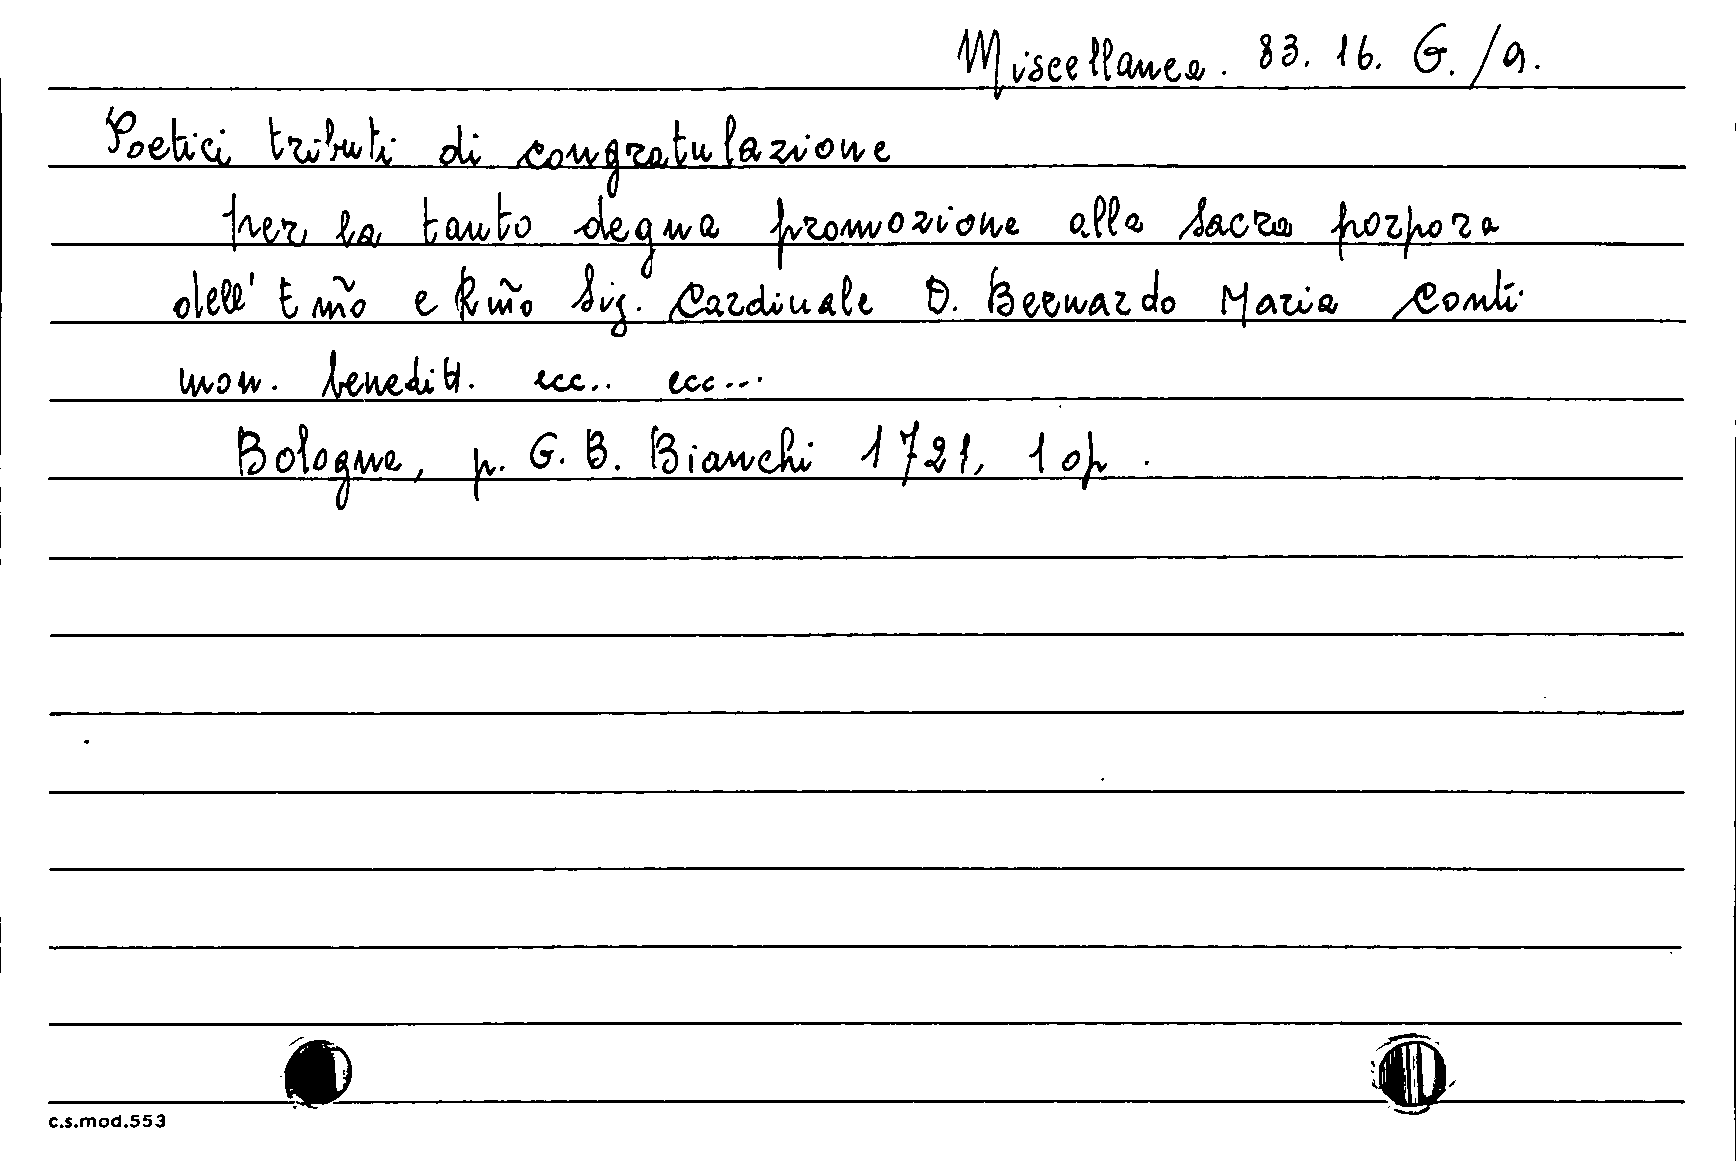 Miscellanea. 83. 16. G. /9.
Poetici tributi di congratulazione
per la tanto degna promozione alla sacra porpora
dell' Em̃o e Rm̃o Sig. Cardinale D. Bernardo Maria Conti
mon. beneditt. ecc.. ecc...
Bologna, p. G. B. Bianchi 1721, 1 op.
c.s.mod.553